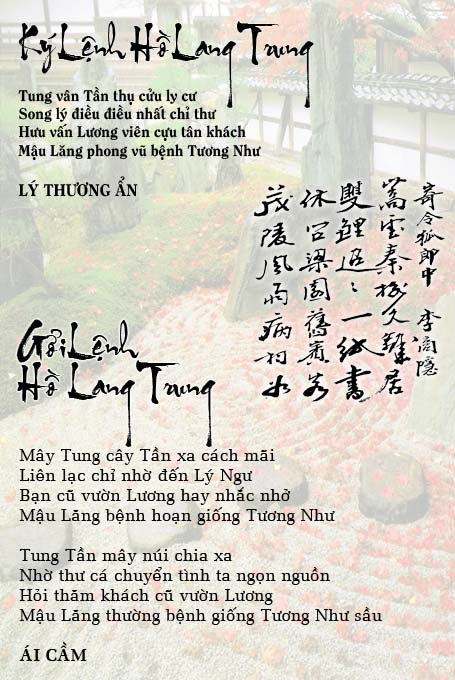 Ký Lệnh Hồ Lang Trung
Tung vân Tần thụ cửu ly cư
Song lý điều điều nhất chỉ thư
Hưu vấn Lương viên cựu tân khách
Mậu Lăng phong vũ bệnh Tương Như
LÝ THƯƠNG ẨN
寄令狐郎中 李商隱
嵩雲秦樹久離居
雙鯉迢〻一紙書
休問梁園舊賓客
茂陵風雨病相如
Gởi Lệnh
Hồ Lang Trung
Mây Tung cây Tần xa cách mãi
Liên lạc chỉ nhờ đến Lý Ngư
Bạn cũ vườn Lương hay nhắc nhở
Mậu Lăng bệnh hoạn giống Tương Như
Tung Tần mây núi chia xa
Nhờ thư cá chuyển tình ta ngọn nguồn
Hỏi thăm khách cũ vườn Lương
Mậu Lăng thường bệnh giống Tương Như sầu
ÁI CẦM